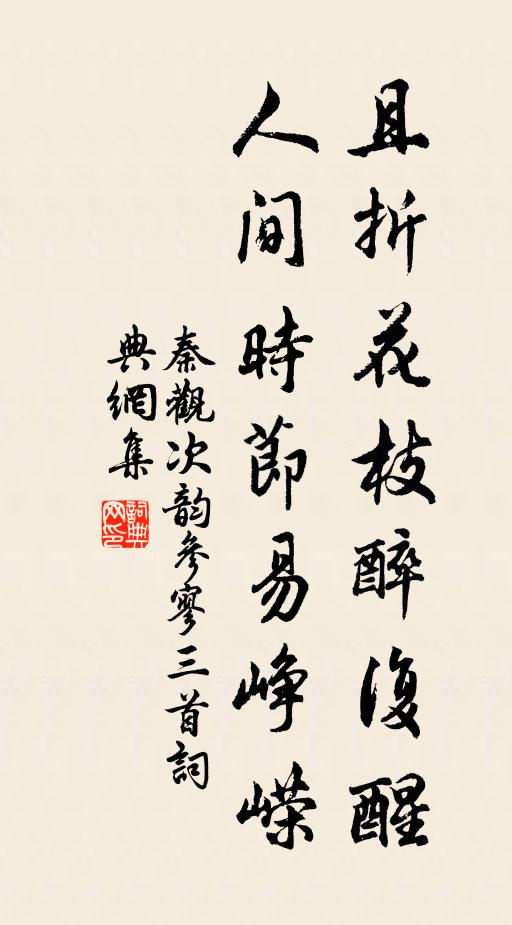 且折花枝醉復醒
人間時節易峥嶸
秦觀次韵參寥三首詞
典網集
詞典网印